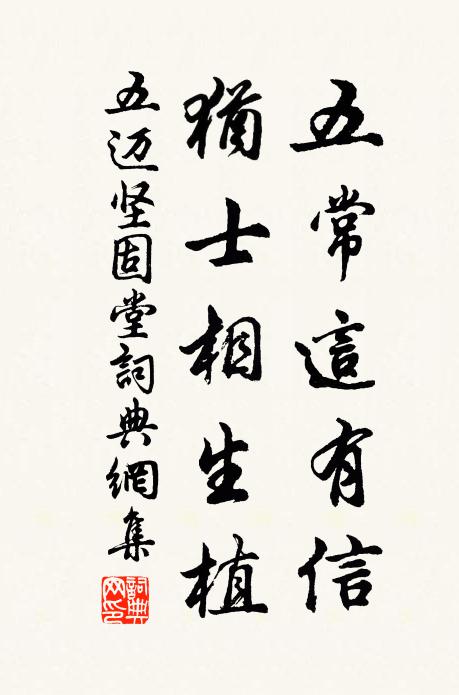 五常這有信
猶士相生植
五迈坚固堂詞典網集
詞典网印